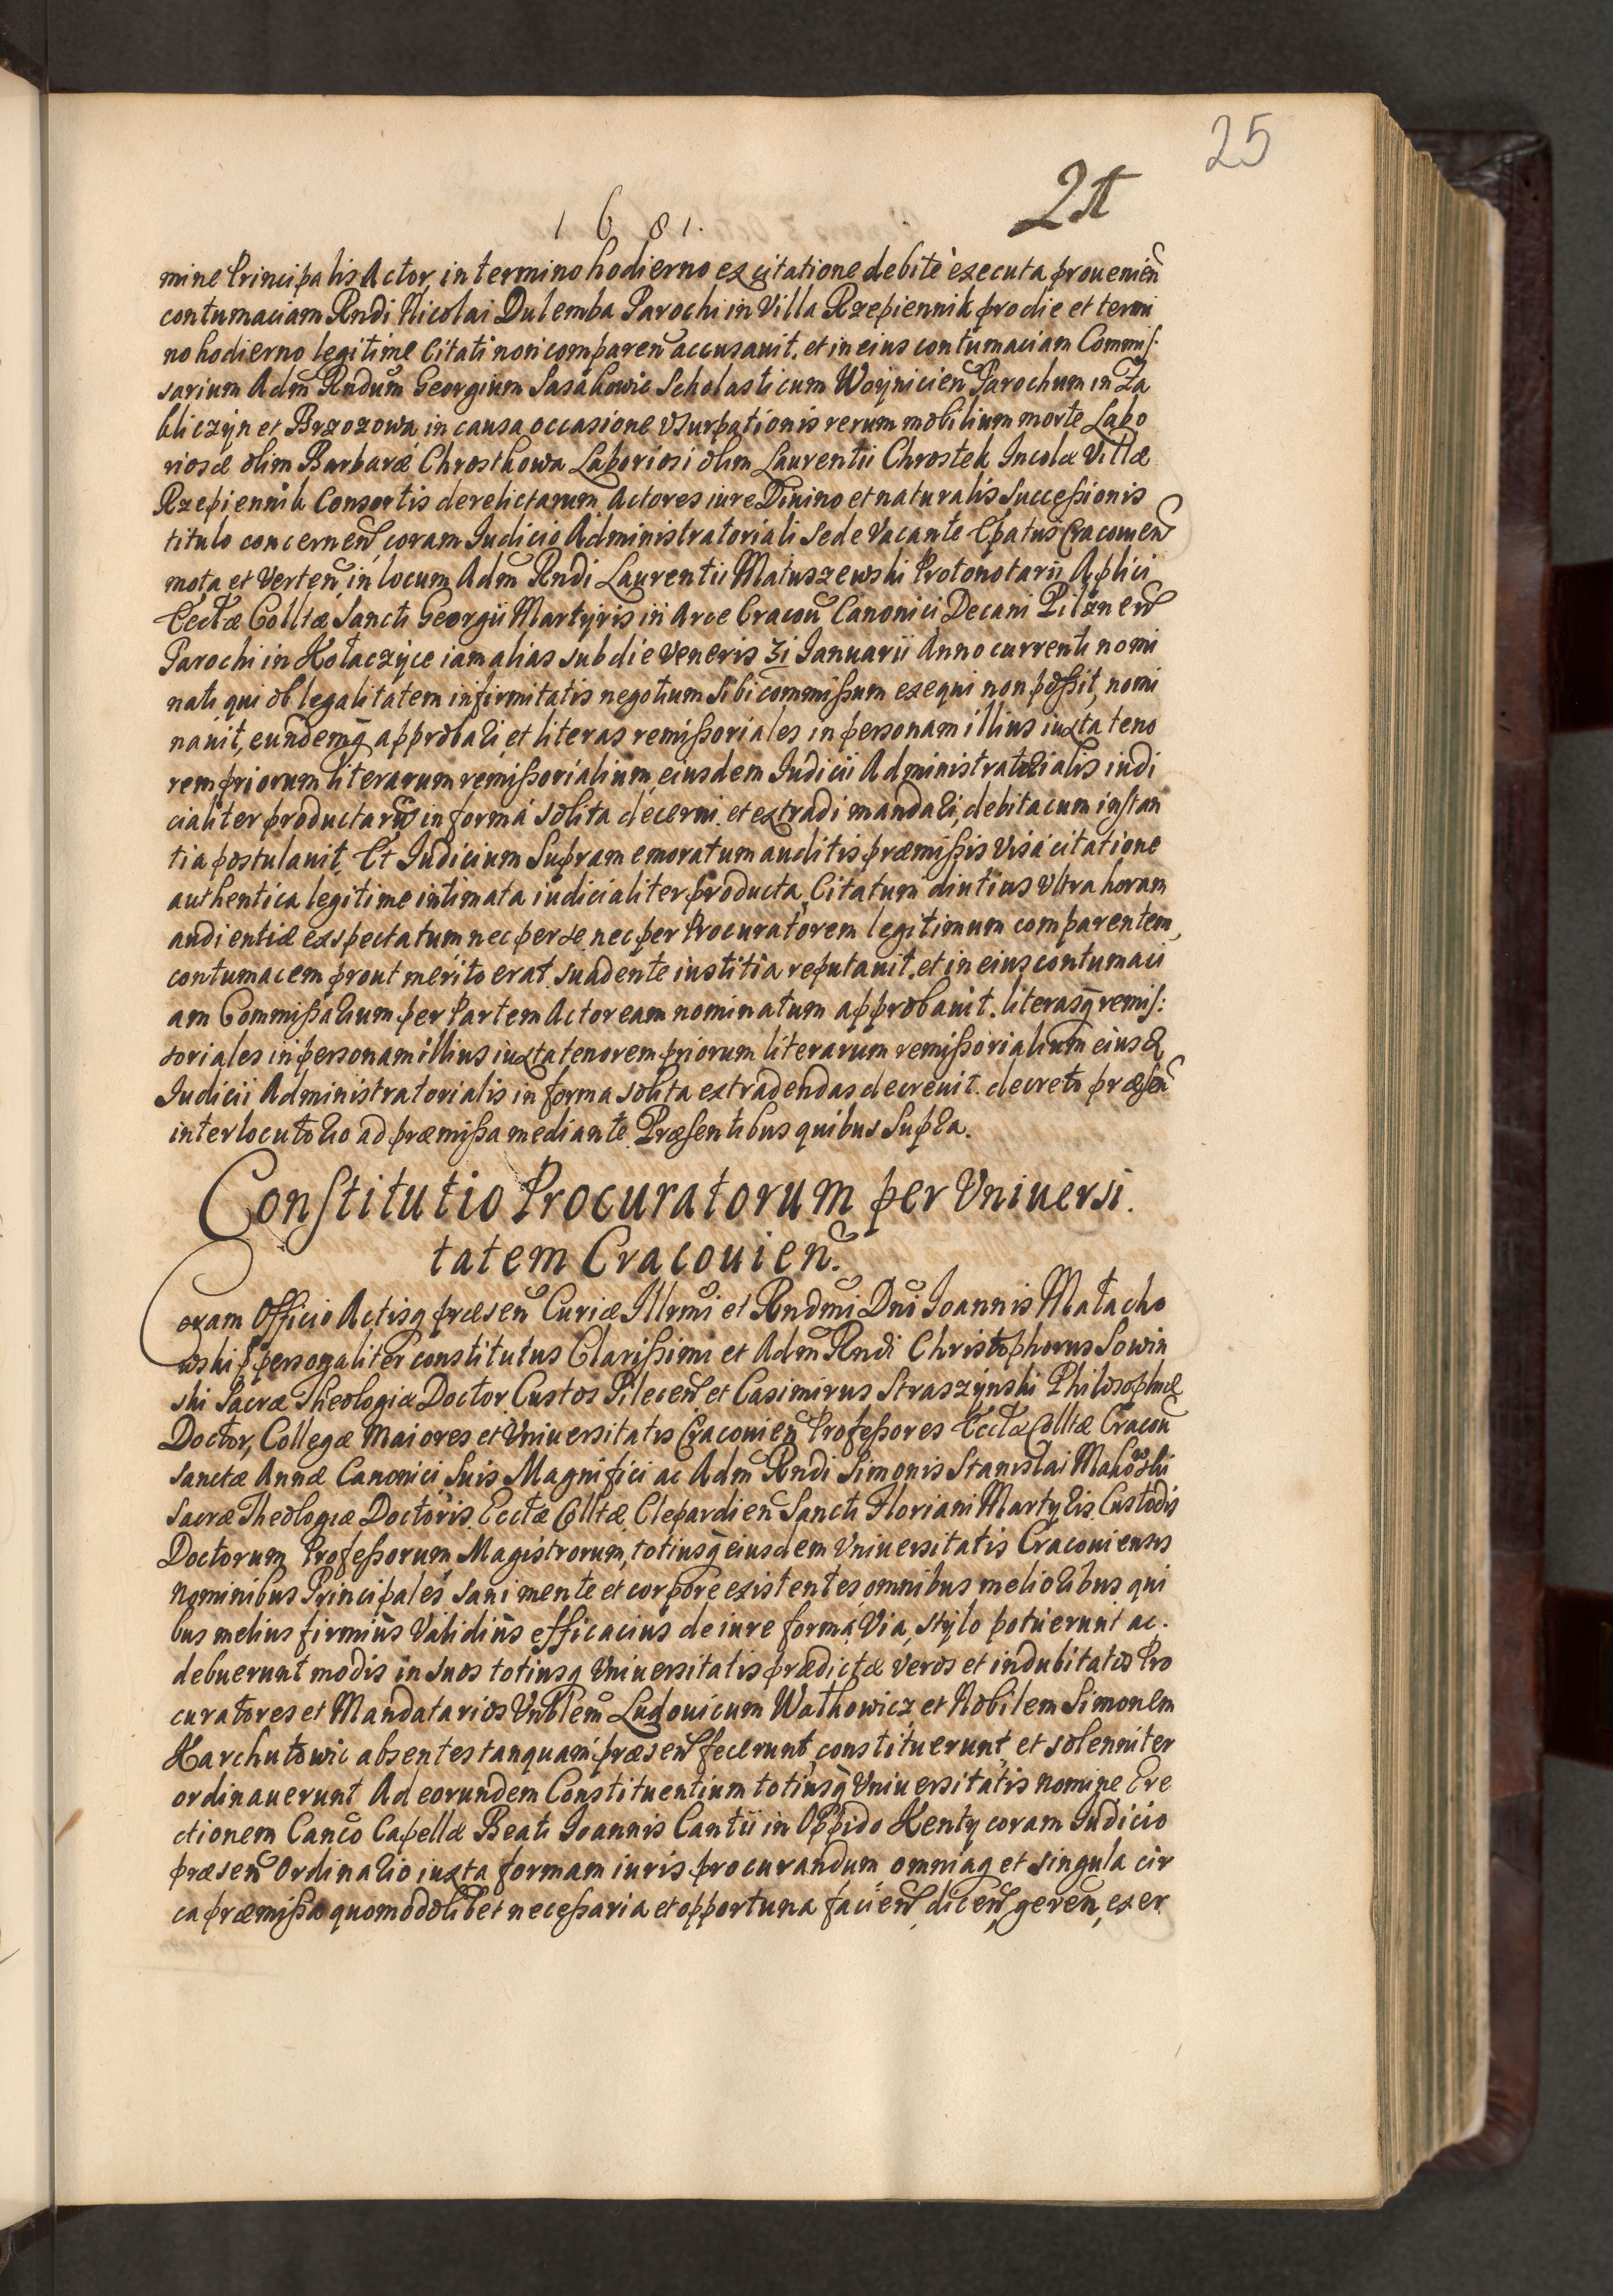 25
21
1681.
mine Principalis Actor, in termino hodierno ex citatione debitè executa, prouenieñ
contumaciam Rndi Nicolai Dulemba Parochi in Villa Rzepiennik pro die et termi
no hodierno legitime Citati non compareñ accusauit, et in eius contumaciam Commis:
sarium Adm Rndum Georgium Sasakowic Scholasticum Woynicieñ Parochum in Za
kliczyn et Brzozowa in causa occasione Vsurpationis rerum mobilium morte Labo
riosæ olim Barbaræ Chrostkowa Laboriosi olim Laurentii Chrostek Incolæ Villæ
Rzepiennik Consortis derelictarum Actores iure Diuino et naturalis Successionis
titulo concerneñ coram Iudicio Administratoriali Sede Vacante Epatus Cracouieñ
mota et Verteñ, in locum Adm Rndi Laurentii Matuszewski Protonotarii Aplici
Ecctæ Colltæ Sancti Georgii Martyris in Arce Cracou Canonici Decani Pilzneñ
Parochi in Kołaczyce iam alias sub die Veneris 31 Ianuarii Anno currenti nomi
nati qui ob legalitatem infirmitatis negotium sibi commissum exequi non possit, nomi
nauit, eundemq approbari et literas remissoriales in personam illius iuxta teno
rem priorum literarum remissorialium eiusdem Iudicii Administratorialis iudi
cialiter productarū in formá solita decerni et extradi mandari, debita cum instan
tia postulauit. Et Iudicium Supramemoratum auditis præmissis Visá citatione
authentica legitime intimata iudicialiter producta, Citatum diutius Vltra horam
audientiæ exspectatum nec per se nec per Procuratorem legitimum comparentem,
contumacem prout meritò erat suadente iustitia reputauit, et in eius contumaci
am Commissarium per Partem Actoream nominatum approbauit, literasq̃ remis:
soriales in personam illius iuxta tenorem priorum literarum remissorialium eiusd
Iudicii Administratorialis in forma solita extradendas decreuit decreto præseñ
interlocutorio ad præmissa mediante. Præsentibus quibus Supra.
Constitutio Procuratorum per Vniuersi
tatem Cracouieñ.
Coram Officio Actisq præseñ Curiæ Illrmi et Rndmi Dni Ioannis Małacho
wski personaliter constitutus Clarissimi et Adm Rndi Christophorus Sowin
ski Sacræ Theologiæ Doctor Custos Pileceñ et Casimirus Straszynski Philosophiæ
Doctor, Collegæ Maiores et Vniuersitatis Cracouieñ Professores Ecctæ Colltæ Cracou
Sanctæ Annæ Canonici, Suis Magnifici ac Adm Rndi Simonis Stanislai Makowski
Sacræ Theologiæ Doctoris Ecctæ Colltæ Clepardieñ Sancti Floriani Martyris Custodis
Doctorum Professorum Magistrorum, totiusq̃ eiusdem Vniuersitatis Cracouiensis
Nominibus Principales sani mente et corpore existentes, omnibus melioribus qui
bus melius firmiùs Validiùs efficaciùs de iure formá, Via, stylo potuerunt ac
debuerunt modis in Suos totiusq Vniuersitatis prædictæ Veros et indubitatos Pro
curatores et Mandatarios Vnblem Ludouicum Wałkowicz et Nobilem Simonem
Karchutowic absentes tanquam præseñ fecerunt, constituerunt, et solenniter
ordinauerunt Ad eorundem Constituentium totiusq̃ Vniuersitatis Nomine Ere
ctionem Canco Capellæ Beati Ioannis Cantii in Oppido Kenty coram Iudicio
præseñ Ordinario iuxta formam iuris procurandum omniaq et singula cir
ca præmissa quomodolibet necessaria et opportuna facieñ, diceñ, gereñ, exer